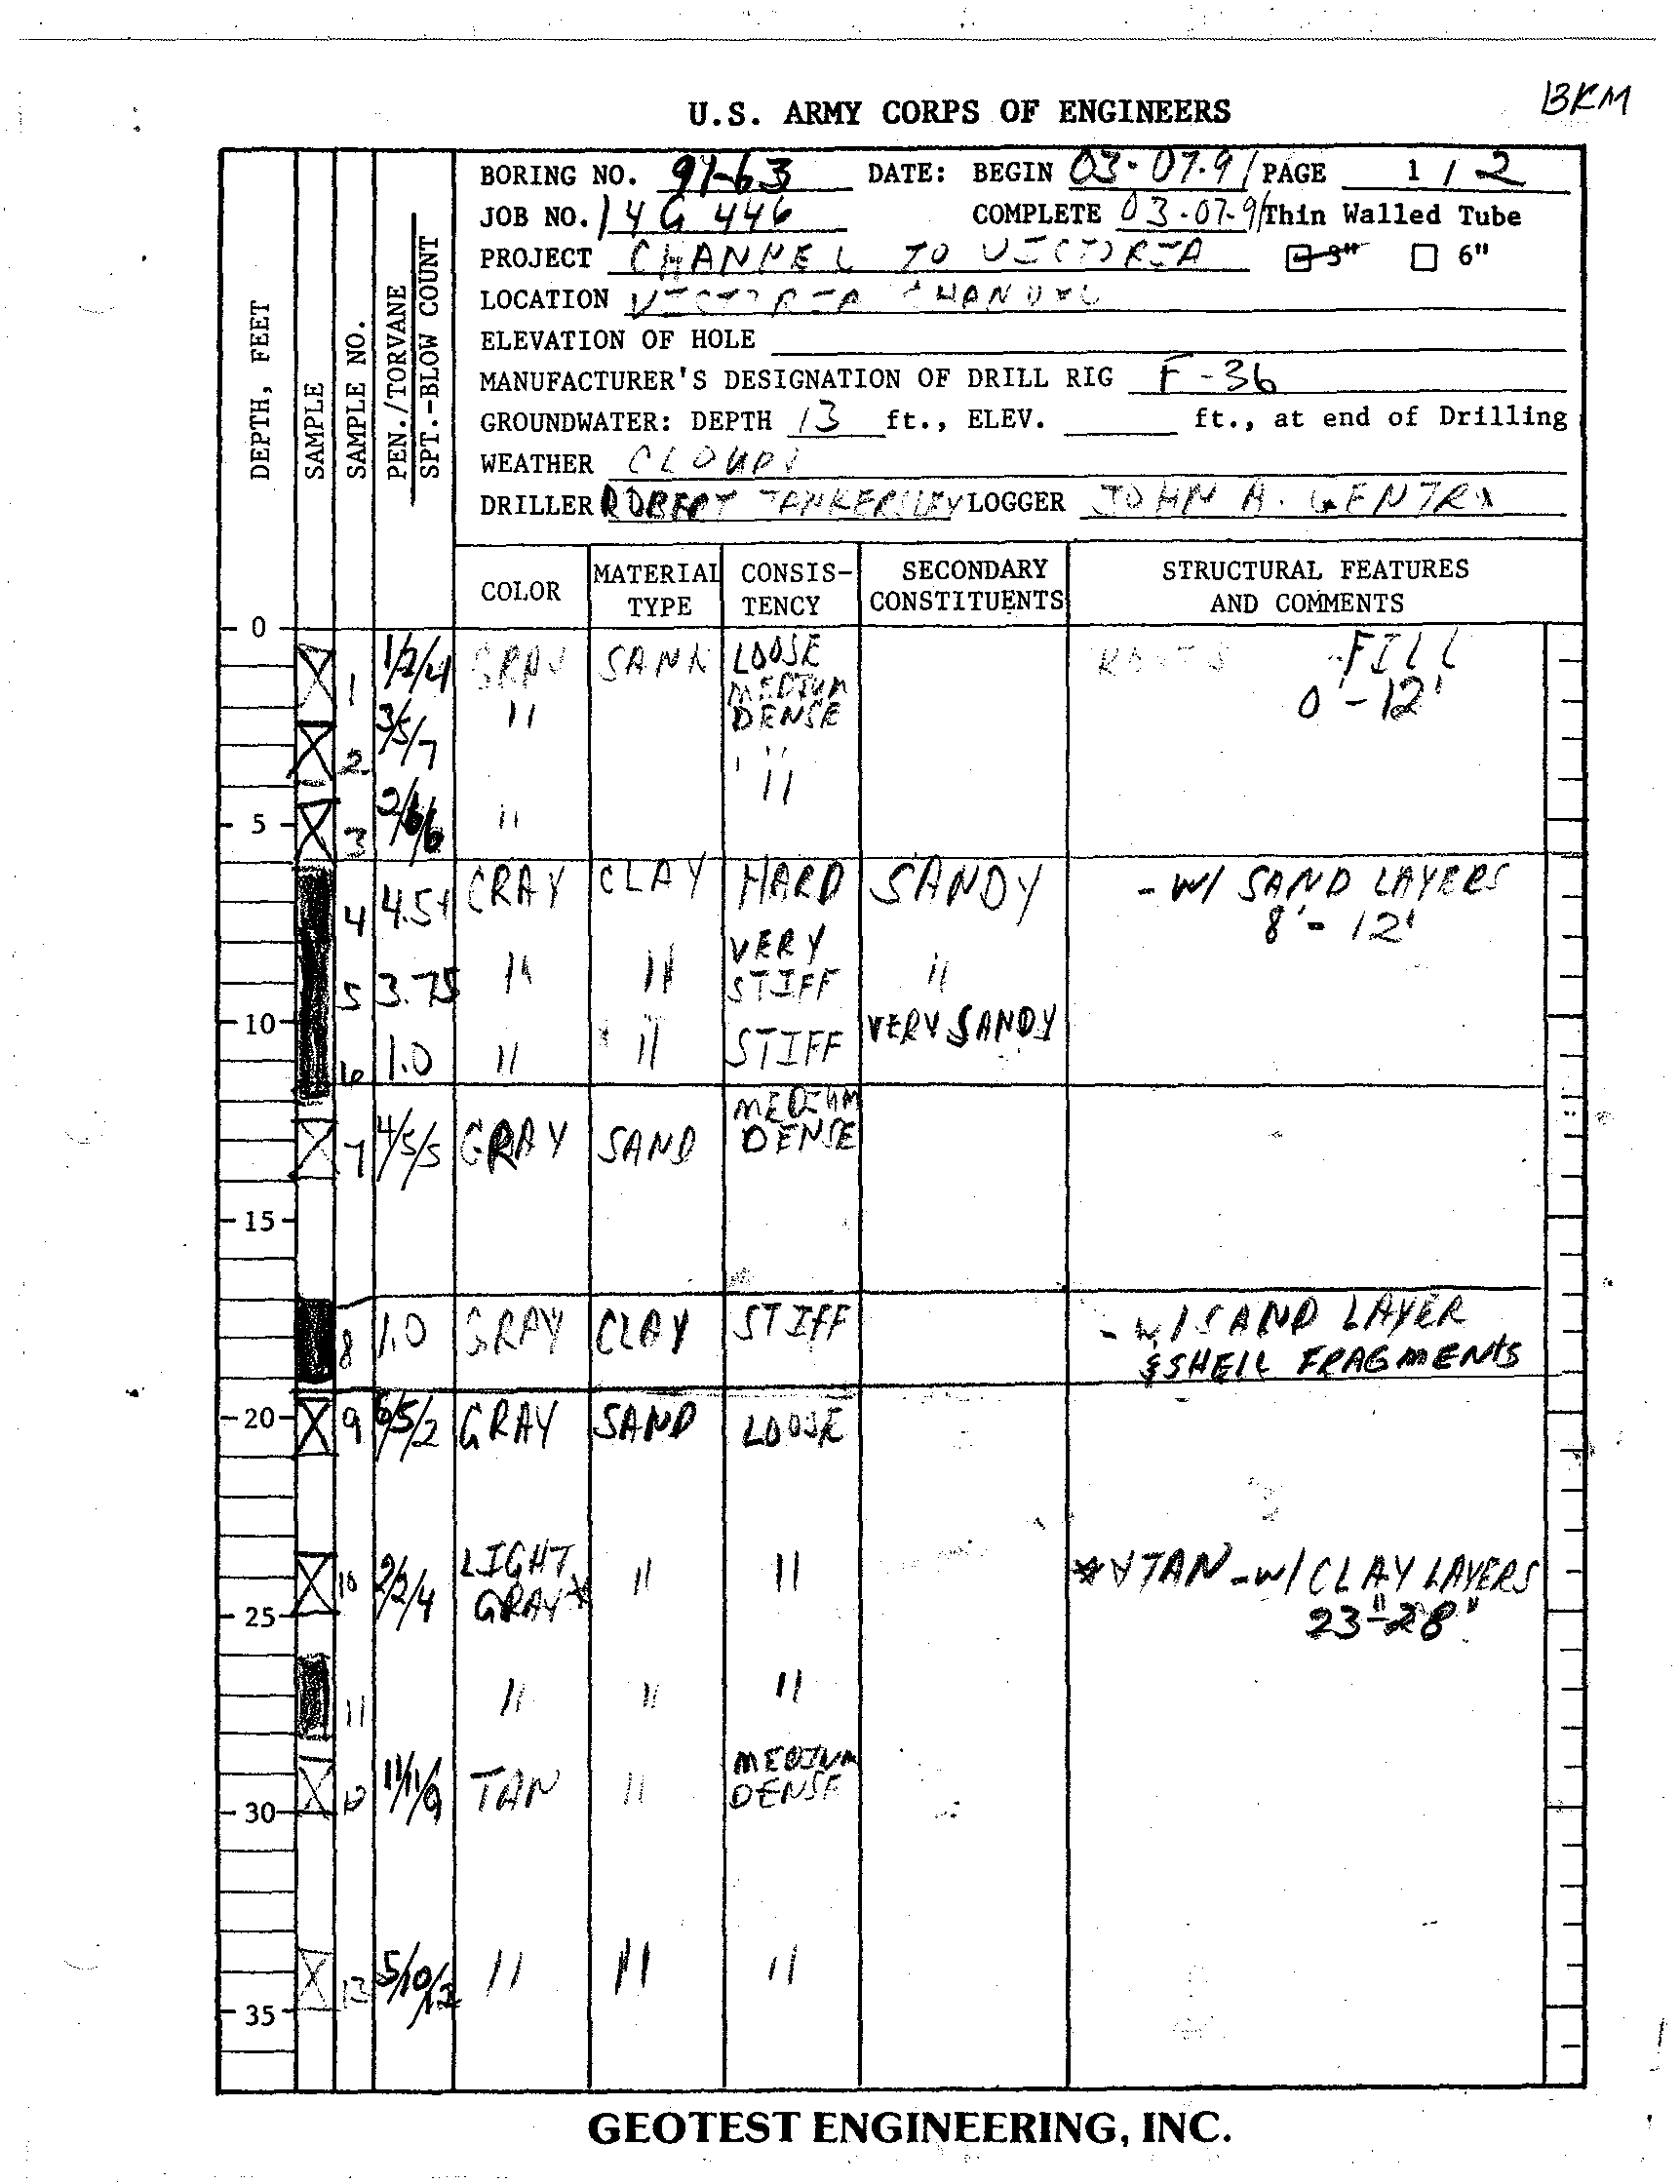 BKM
U.S. ARMY CORPS OF ENGINEERS
BORING NO. 91-63 DATE: BEGIN 03-07-91 PAGE 1 / 2
JOB NO. 14G446 COMPLETE 03-07-91 Thin Walled Tube
PROJECT CHANNEL TO VICTORIA 3" 6"
LOCATION VICTORIA CHANNEL
ELEVATION OF HOLE
MANUFACTURER'S DESIGNATION OF DRILL RIG F-36
GROUNDWATER: DEPTH 13 ft., ELEV. ft., at end of Drilling
WEATHER CLOUDY
DRILLER ROBERT TANKERSLEY LOGGER JOHN A. GENTRY
DEPTH, FEET
SAMPLE
SAMPLE NO.
PEN./TORVANE
SPT.-BLOW COUNT
COLOR MATERIAL TYPE CONSIS-TENCY SECONDARY CONSTITUENTS STRUCTURAL FEATURES AND COMMENTS
0
1 1/2/4 GRAY SAND LOOSE ROOTS FILL
0'-12'
2 3/5/7 " MEDIUM DENSE
" "
5
3 /6/6 " "
4 4.5+ GRAY CLAY HARD SANDY - W/ SAND LAYERS
8'-12'
5 3.75 " " VERY STIFF "
10
6 1.0 " " STIFF VERY SANDY
7 4/5/5 GRAY SAND MEDIUM DENSE
15
8 1.0 GRAY CLAY STIFF - W/SAND LAYER
& SHELL FRAGMENTS
20 9 6/5/2 GRAY SAND LOOSE
10 2/2/4 LIGHT GRAY* " " * & TAN - W/ CLAY LAYERS
25 23"-28"
11 " " "
12 11/11/9 TAN " MEDIUM DENSE
30
13 5/10/12 " " "
35
GEOTEST ENGINEERING, INC.